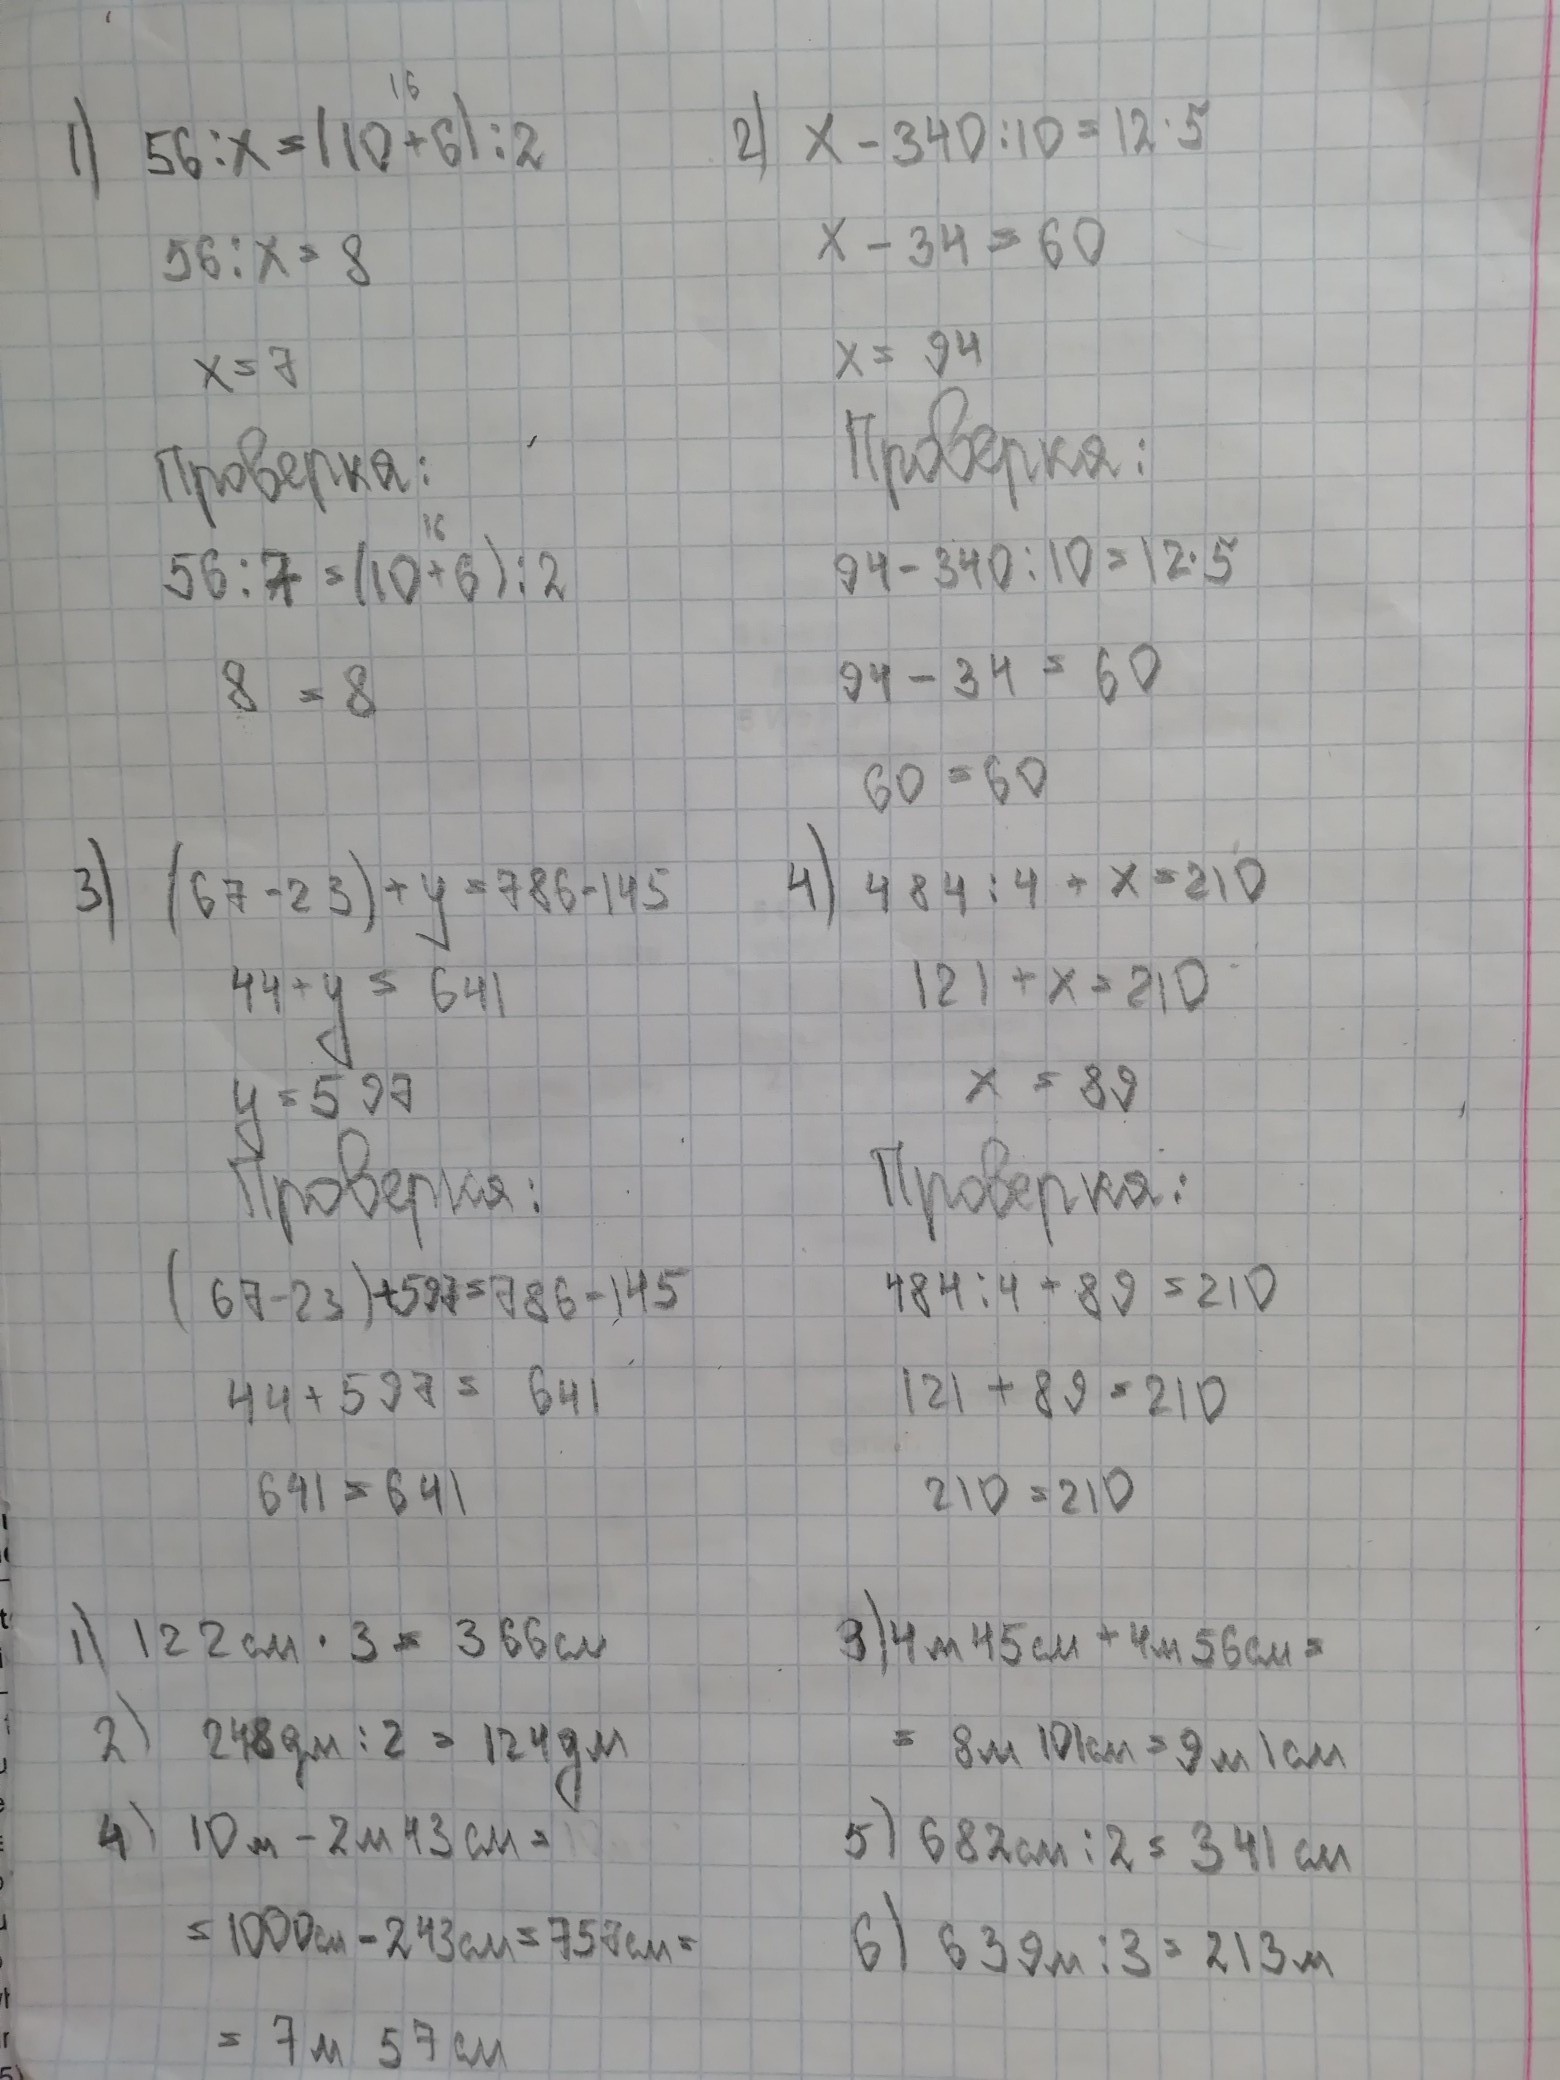 1) 56:x=(10+6):2
16
56:x=8
x=7
Проверка:
56:7=(10+6):2
16
8=8
2) x-340:10=12·5
x-34=60
x=94
Проверка:
94-340:10=12·5
94-34=60
60=60
3) (67-23)+y=786-145
44+y=641
y=597
Проверка:
(67-23)+597=786-145
44+597=641
641=641
4) 484:4+x=210
121+x=210
x=89
Проверка:
484:4+89=210
121+89=210
210=210
1) 122см·3=366см
2) 248дм:2=124дм
3) 4м45см+4м56см=
=8м101см=9м1см
4) 10м-2м43см=
=1000см-243см=757см=
=7м 57см
5) 682см:2=341см
6) 639м:3=213м